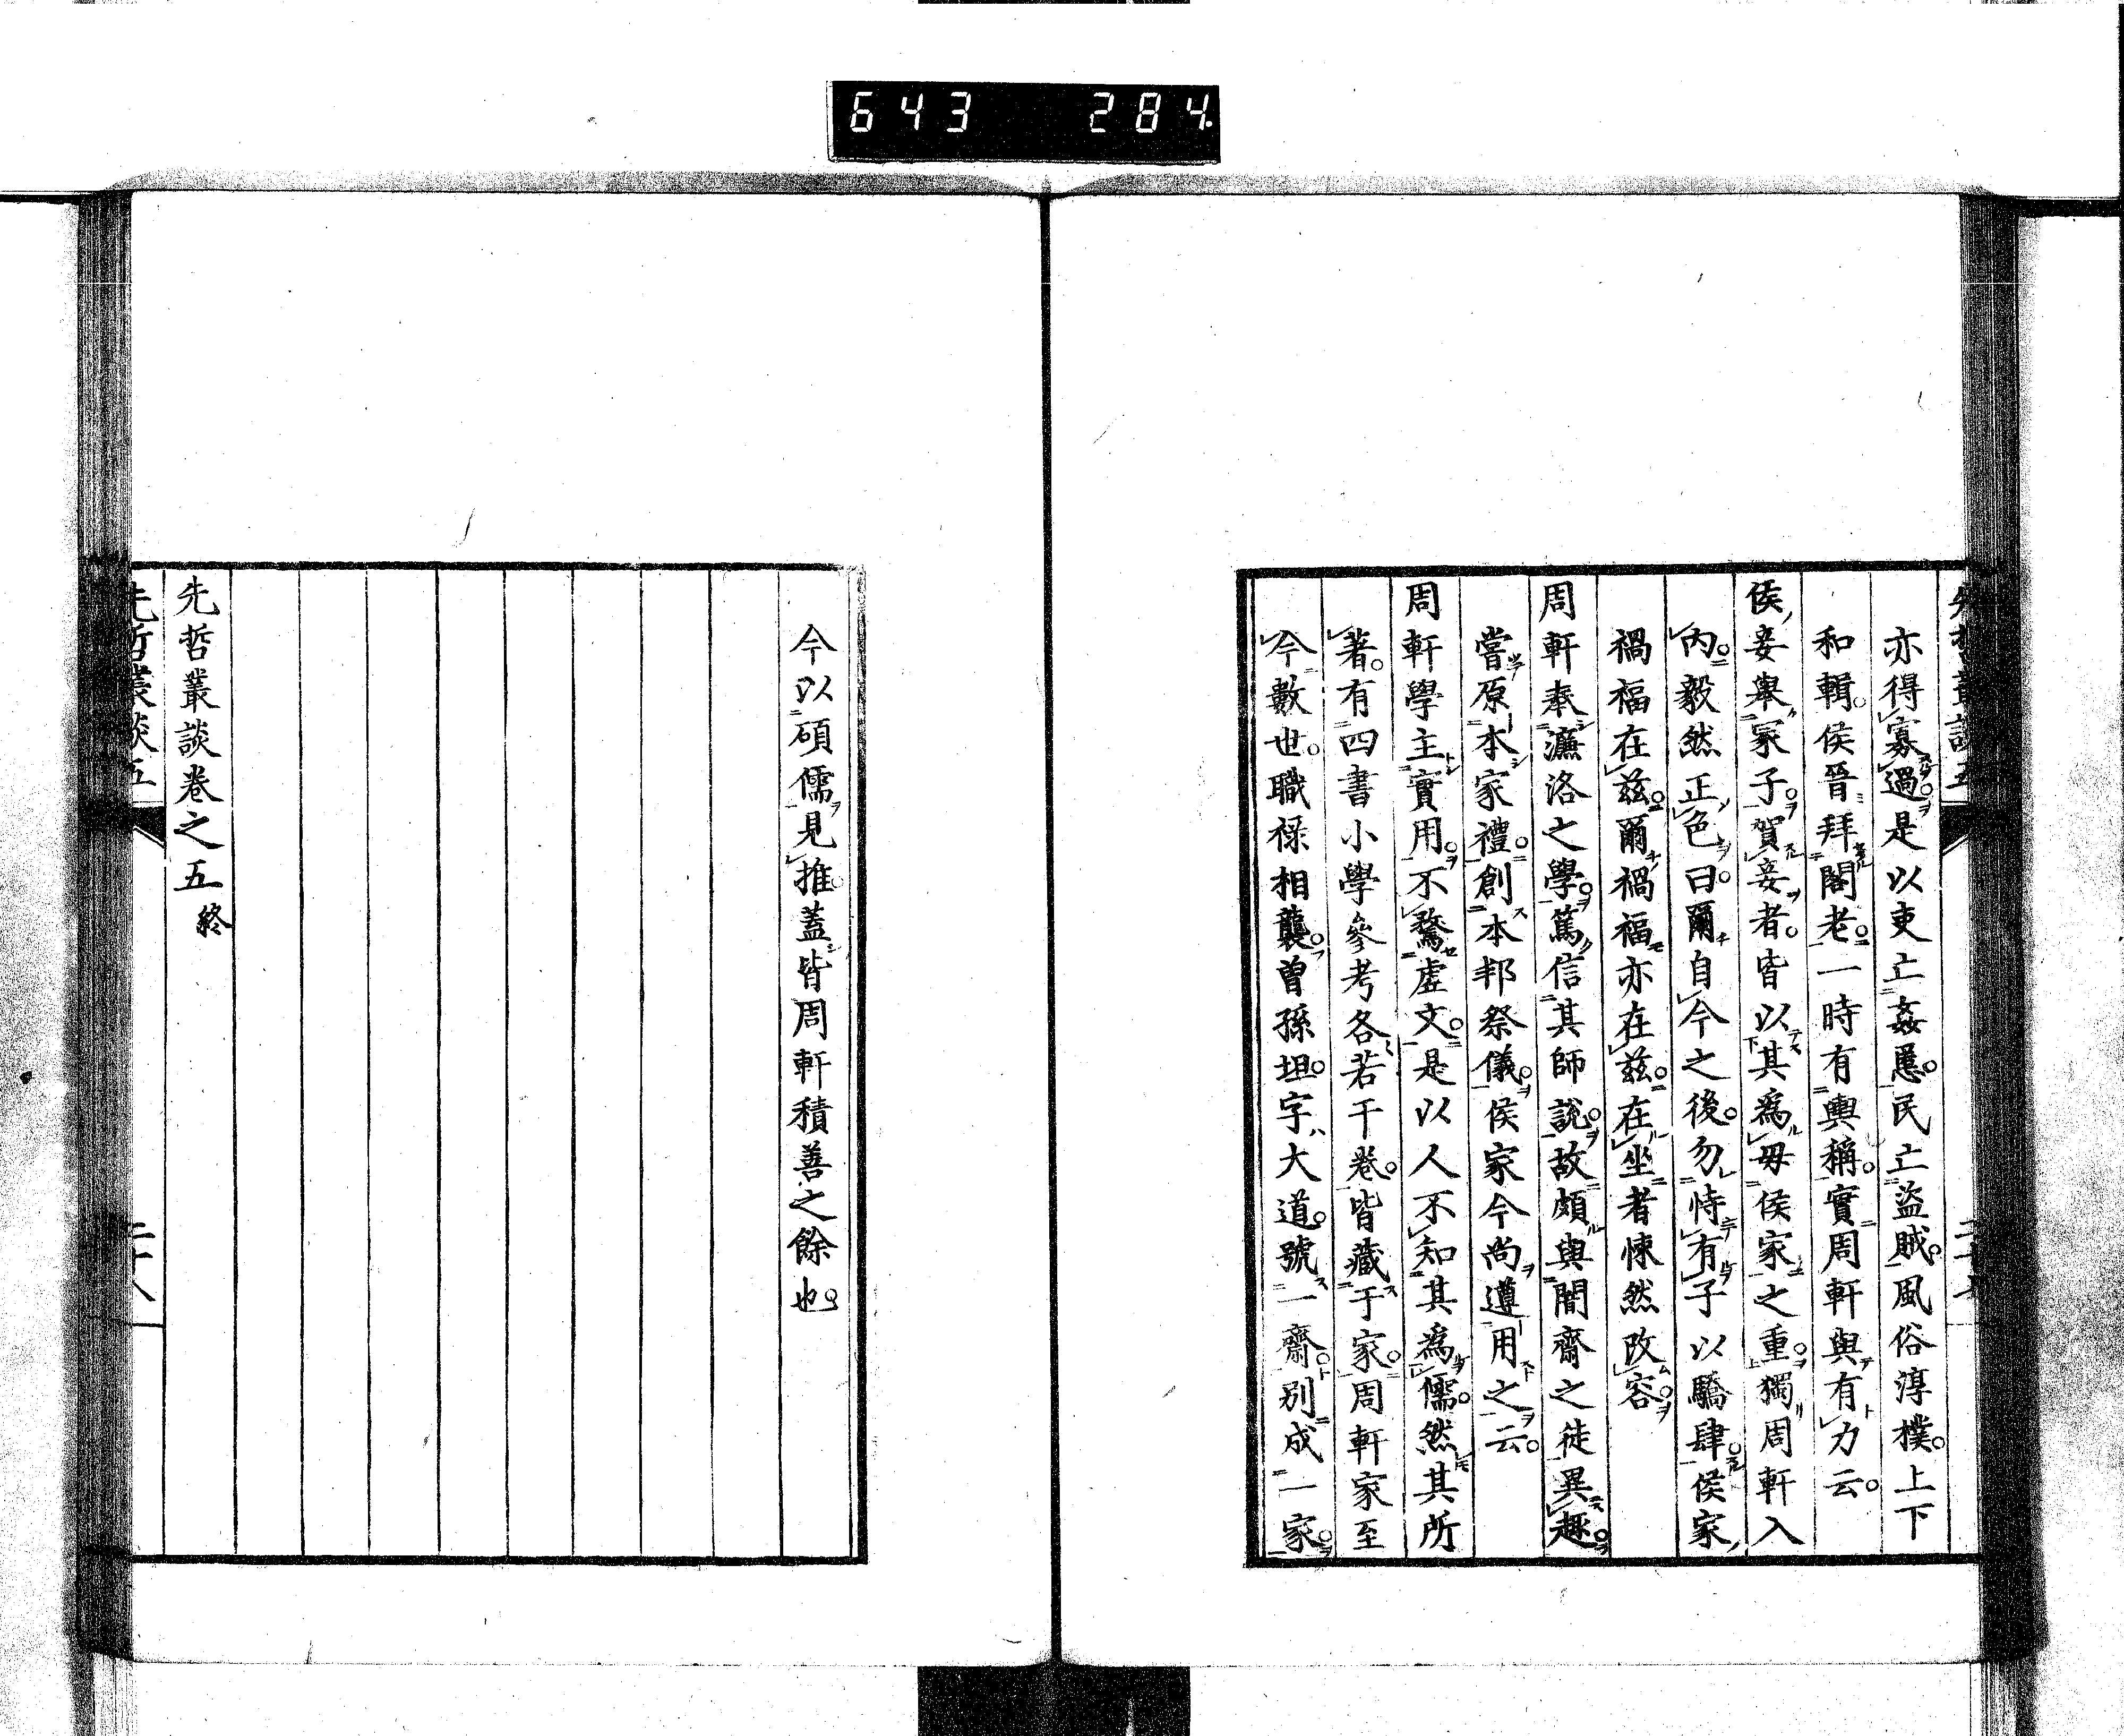 643 284
亦得寡過是以吏亡姦慝民亡盜賊風俗淳樸上下
和輯侯晉拜閣老一時有輿稱實周軒與有力云
侯妾舉家子賀妾者皆以其爲毋侯家之重獨周軒入
內毅然正色曰爾自今之後勿恃有子以驕肆侯家
禍福在茲爾禍福亦在茲在坐者悚然改容
周軒奉濂洛之學篤信其師說故頗與闇齋之徒異趣
嘗原本家禮創本邦祭儀侯家今尚遵用之云
周軒學主實用不騖虛文是以人不知其爲儒然其所
著有四書小學參考各若干卷皆藏于家周軒家至
今數世職祿相襲曾孫坦字大道號一齋別成一家
今以碩儒見推蓋皆周軒積善之餘也
先哲叢談卷之五終
先哲叢談五
二十八